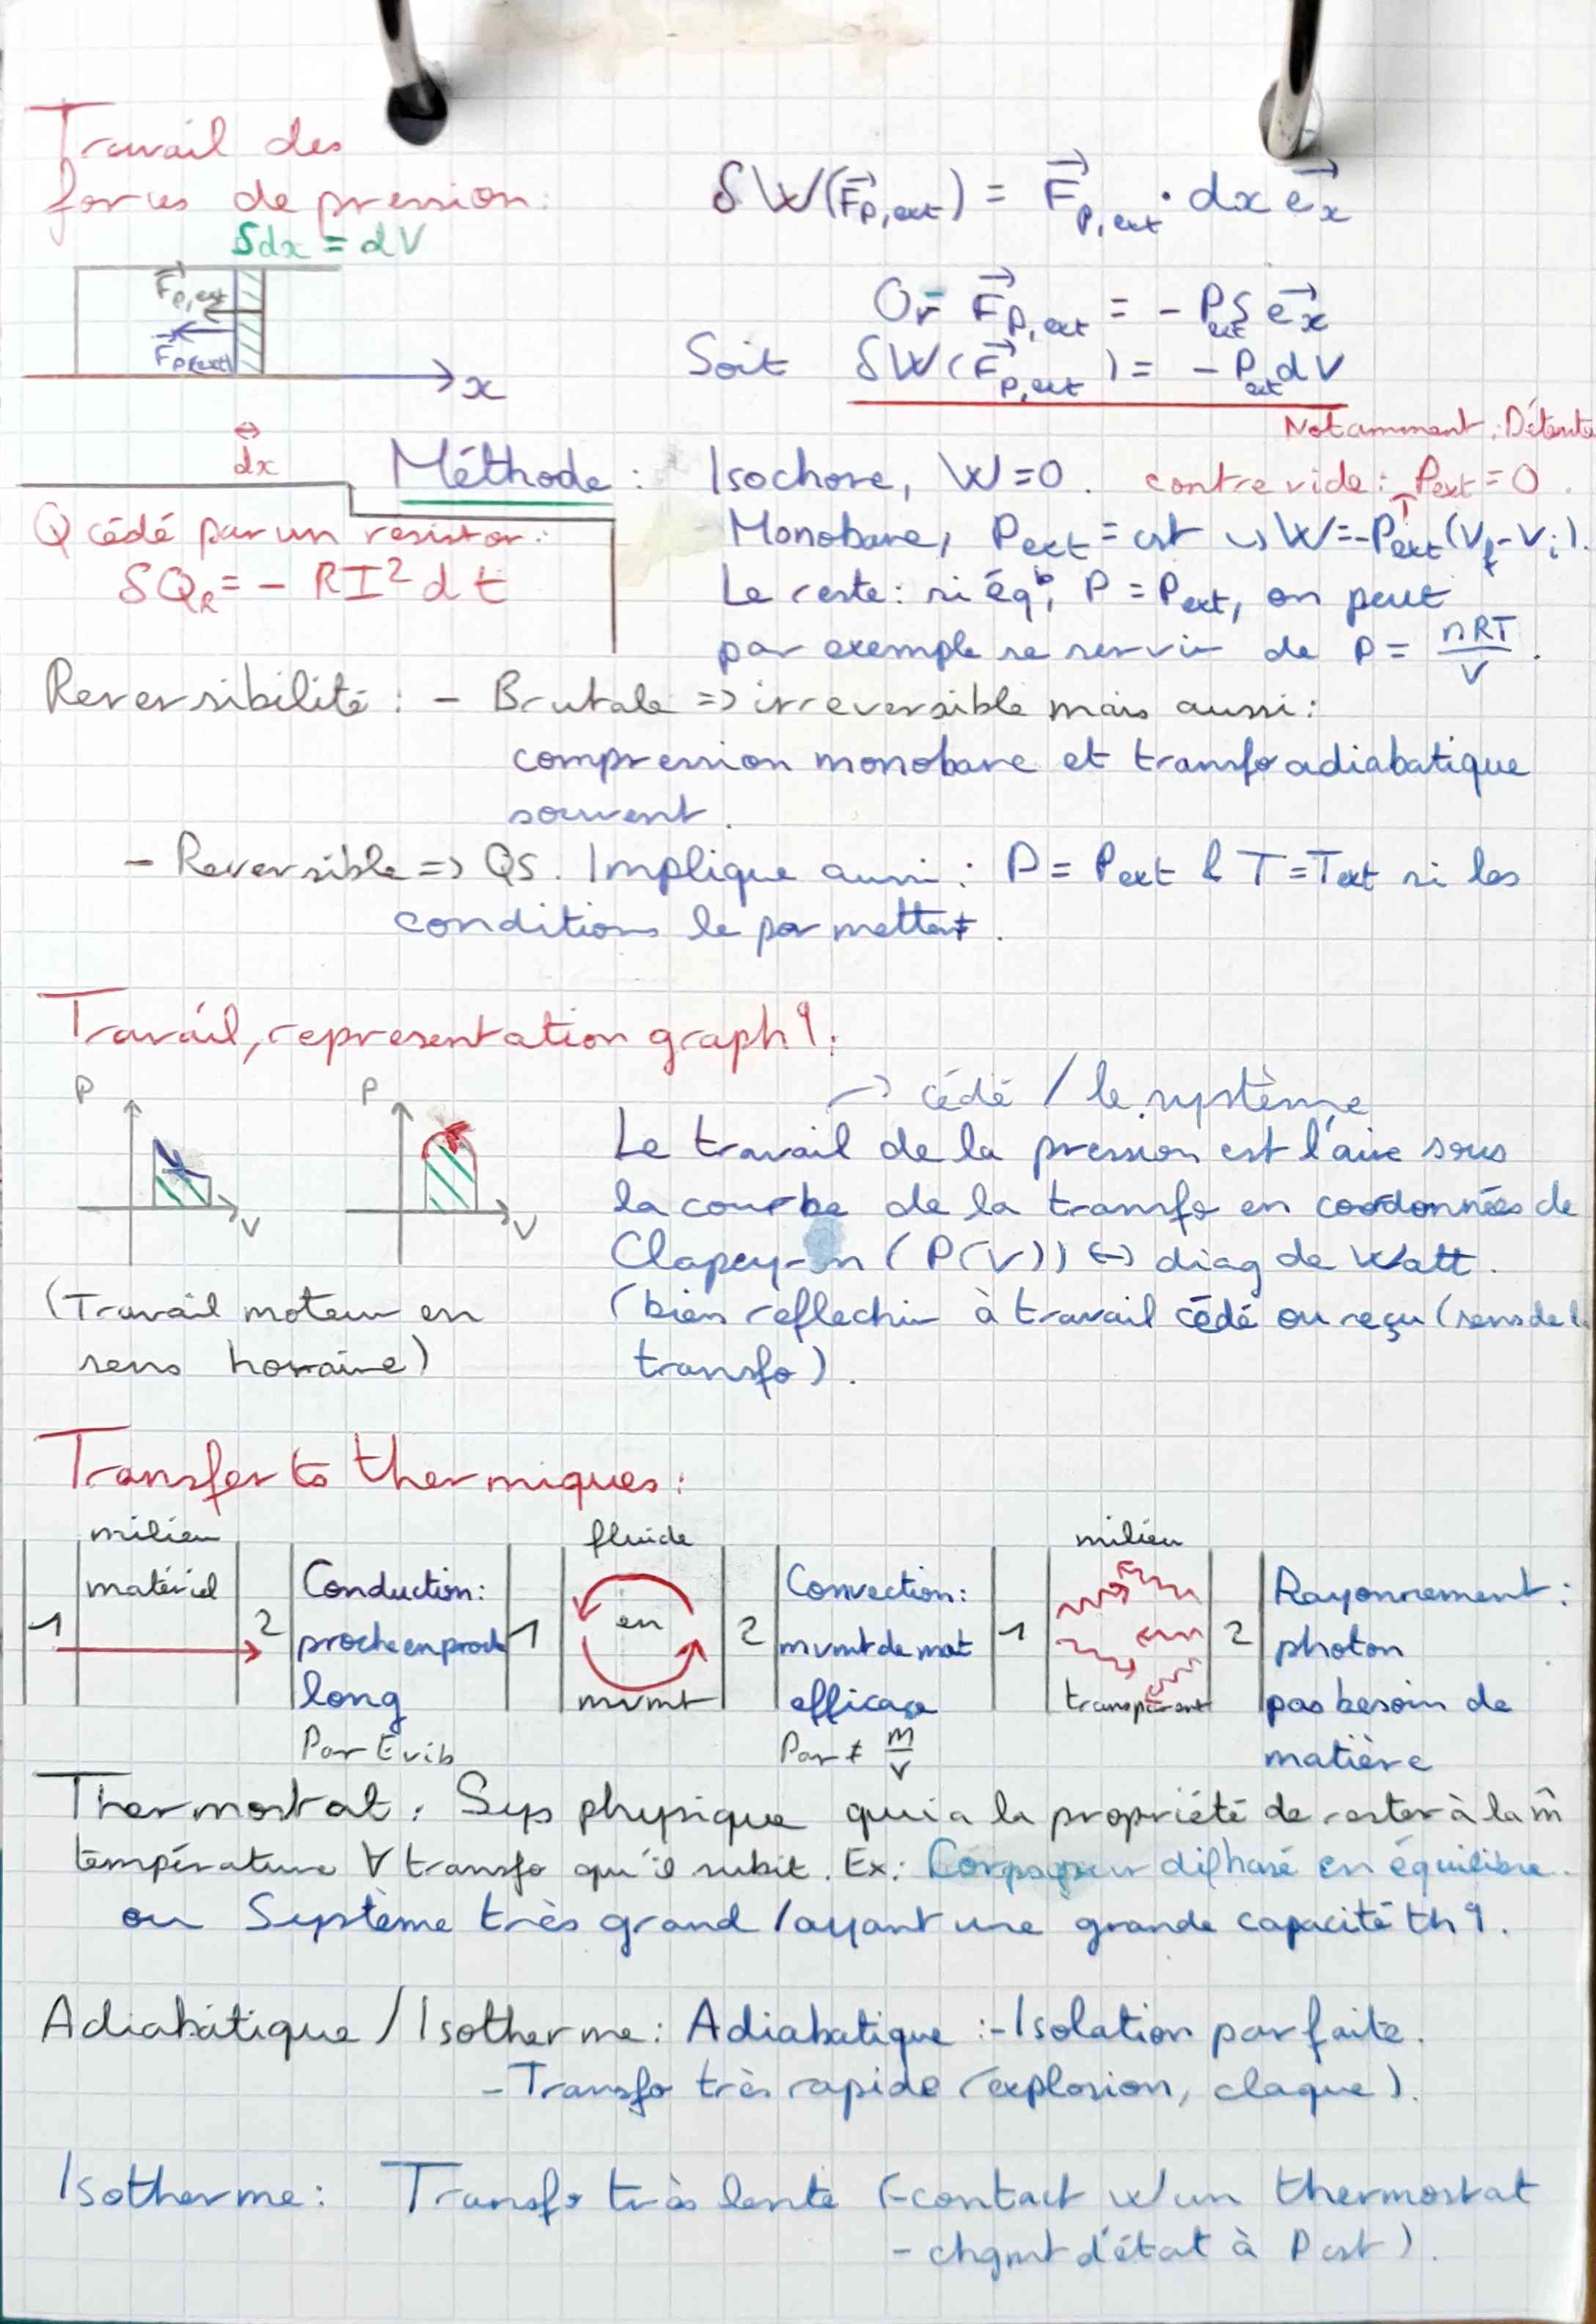 Travail des
forces de pression:
Sdx = dV
F⃗p,ext
F⃗p(ext)
x
dx
δW(F⃗p,ext) = F⃗p,ext · dx e⃗x
Or F⃗p,ext = - Pext S e⃗x
Soit δW(F⃗p,ext) = - Pext dV
Notamment: Détente
contre vide: Pext = 0.
Méthode: Isochore, W=0.
Monobare, Pext = cst ↪ W=-Pext(Vf-Vi).
Le reste: si éqb, P = Pext, on peut
par exemple se servir de P = nRT/V.
Q cédé par un resistor:
δQR = - RI² dt
Reversibilité: - Brutale => irreversible mais aussi:
compression monobare et transfo adiabatique
souvent.
- Reversible => QS. Implique aussi: P = Pext & T=Text si les
conditions le permettent.
Travail, representation graphq:
P
V
P
V
(Travail moteur en
sens horaire)
→ cédé / le système
Le travail de la pression est l'aire sous
la courbe de la transfo en coordonnées de
Clapeyron (P(V)) ↔ diag de Watt.
(bien reflechir à travail cédé ou reçu (sens de la
transfo).
Transferts thermiques:
1
milieu
matériel
2
Conduction:
proche en proche
long
Par Evib
1
fluide
en
mvmt
2
Convection:
mvmt de mat
efficace
Par ≠ m/V
1
milieu
transparent
2
Rayonnement:
photon
pas besoin de
matière
Thermostat: Sys physique qui a la propriété de rester à la m̂
température ∀ transfo qu'il subit. Ex: Corps pur diphasé en équilibre.
ou Système très grand / ayant une grande capacité thq.
Adiabatique / Isotherme: Adiabatique :- Isolation parfaite.
- Transfo très rapide (explosion, claque).
Isotherme: Transfo très lente (-contact w/ un thermostat
- chgmt d'état à P cst).